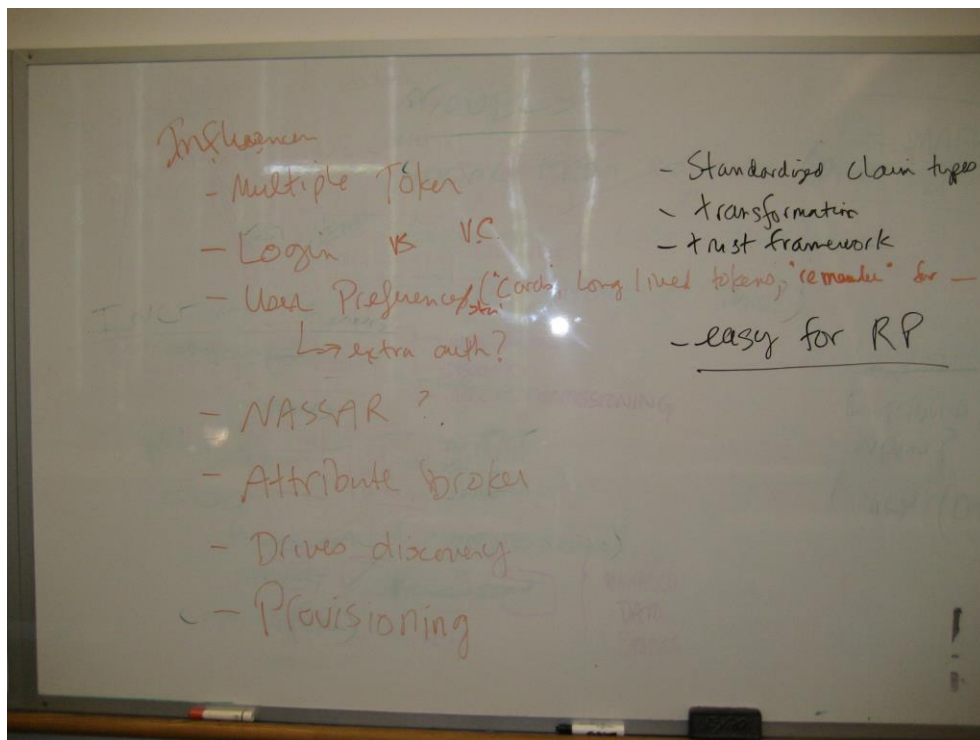 - Multiple Token
- Login vs V.C.
- User Preferences ("Cards", Long lived tokens, "remember" for —
↳ extra auth?
- NASSAR ?
- Attribute broker
- Drives discovery
- Provisioning
- Standardized claim types
- transformation
- trust framework
- easy for RP